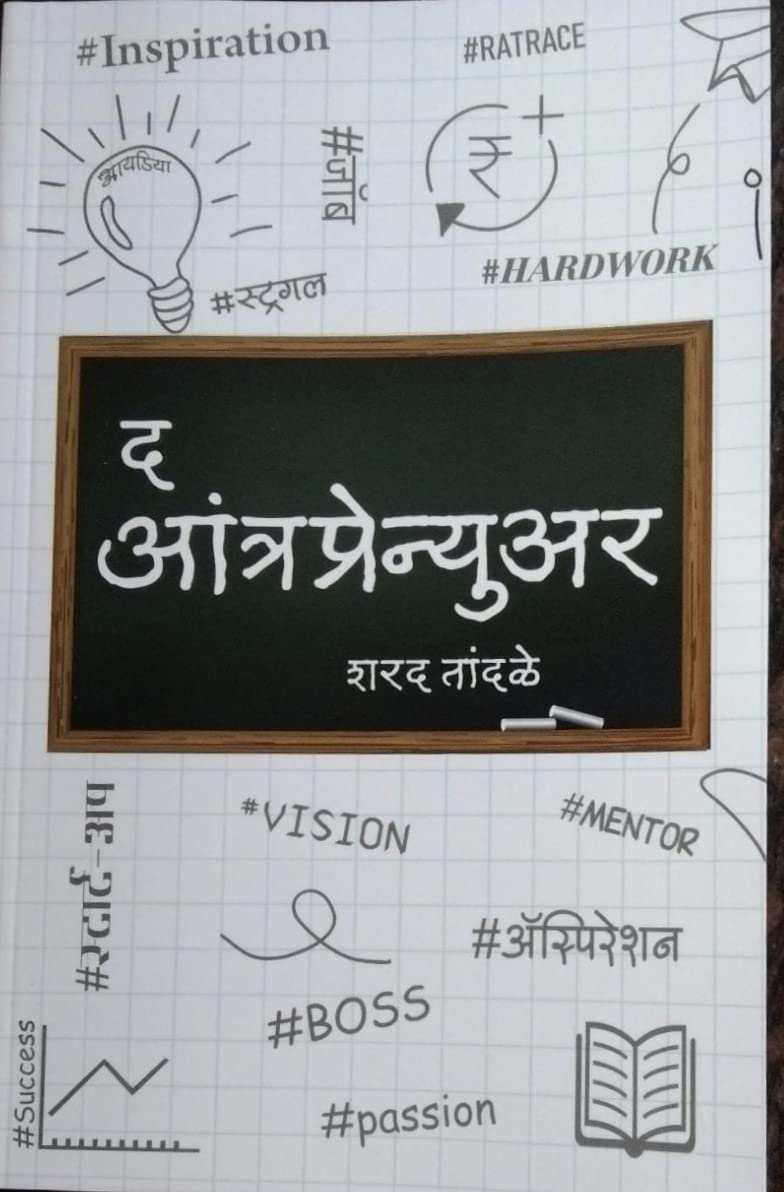 #Inspiration
#RATRACE
आयडिया
#जॉब
₹
#HARDWORK
#स्ट्रगल
द
आंत्रप्रेन्युअर
शरद तांदळे
#VISION
#MENTOR
#स्टार्ट-अप
#ॲस्पिरेशन
#BOSS
#Success
#passion